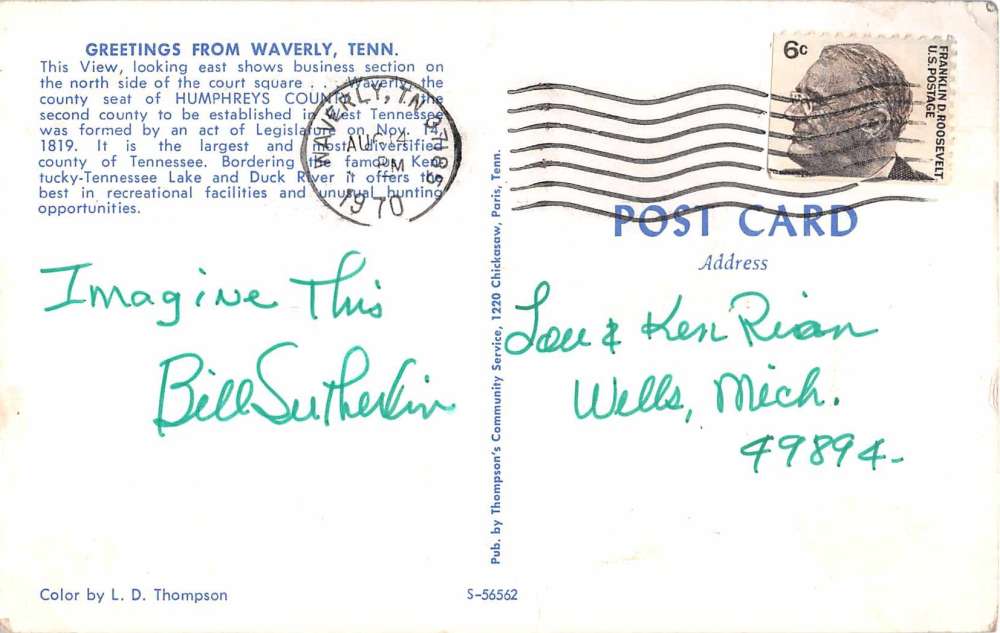 GREETINGS FROM WAVERLY, TENN.
This View, looking east shows business section on
the north side of the court square . . . Waverly, the
county seat of HUMPHREYS COUNTY, the
second county to be established in West Tennessee
was formed by an act of Legislature on Nov.
1819. It is the largest and most diversified
county of Tennessee. Bordering the famous Ken-
tucky-Tennessee Lake and Duck River it offers the
best in recreational facilities and unusual hunting
opportunities.
WAVERLY, TN 37185
AUG 24
PM
1970
6c
FRANKLIN D. ROOSEVELT
U.S. POSTAGE
POST CARD
Address
Imagine This
Bill Sutherlin
Lou & Ken Rian
Wells, Mich.
49894-
Pub. by Thompson's Community Service, 1220 Chickasaw, Paris, Tenn.
Color by L. D. Thompson
S-56562